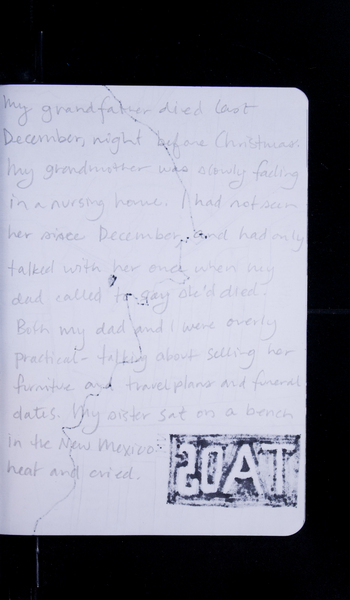 My grandfather died last
December, night before Christmas.
My grandmother was slowly fading
in a nursing home. I had not seen
her since December, and had only
talked with her once when my
dad called to say she'd died.
Both my dad and I were overly
practical - talking about selling her
furniture and travel plans and funeral
dates. My sister sat on a bench
in the New Mexico
heat and cried.